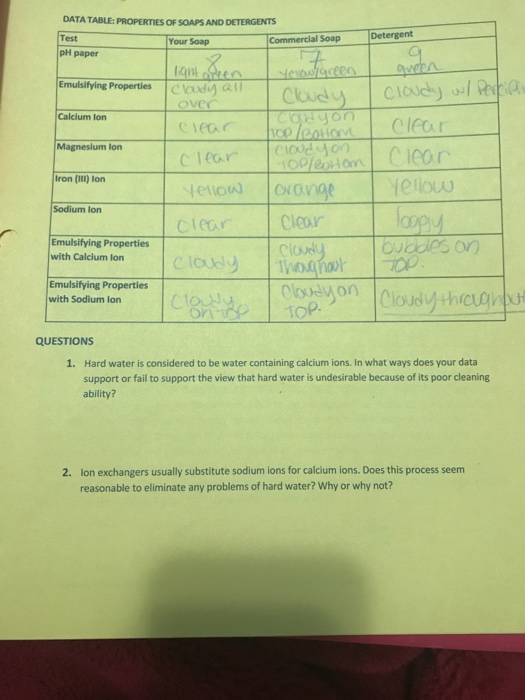 DATA TABLE: PROPERTIES OF SOAPS AND DETERGENTS
Test Your Soap Commercial Soap Detergent
pH paper 8 light green 7 green 9 green
Emulsifying Properties cloudy all over Cloudy cloudy w/
Calcium Ion clear on top/bottom clear
Magnesium Ion clear cloudy on top/bottom clear
Iron (III) Ion yellow orange yellow
Sodium Ion clear clear
Emulsifying Properties with Calcium Ion cloudy cloudy throughout bubbles on TOP.
Emulsifying Properties with Sodium Ion cloudy on top cloudy on TOP. Cloudy throughout
QUESTIONS
1. Hard water is considered to be water containing calcium ions. In what ways does your data
support or fail to support the view that hard water is undesirable because of its poor cleaning
ability?
2. Ion exchangers usually substitute sodium ions for calcium ions. Does this process seem
reasonable to eliminate any problems of hard water? Why or why not?